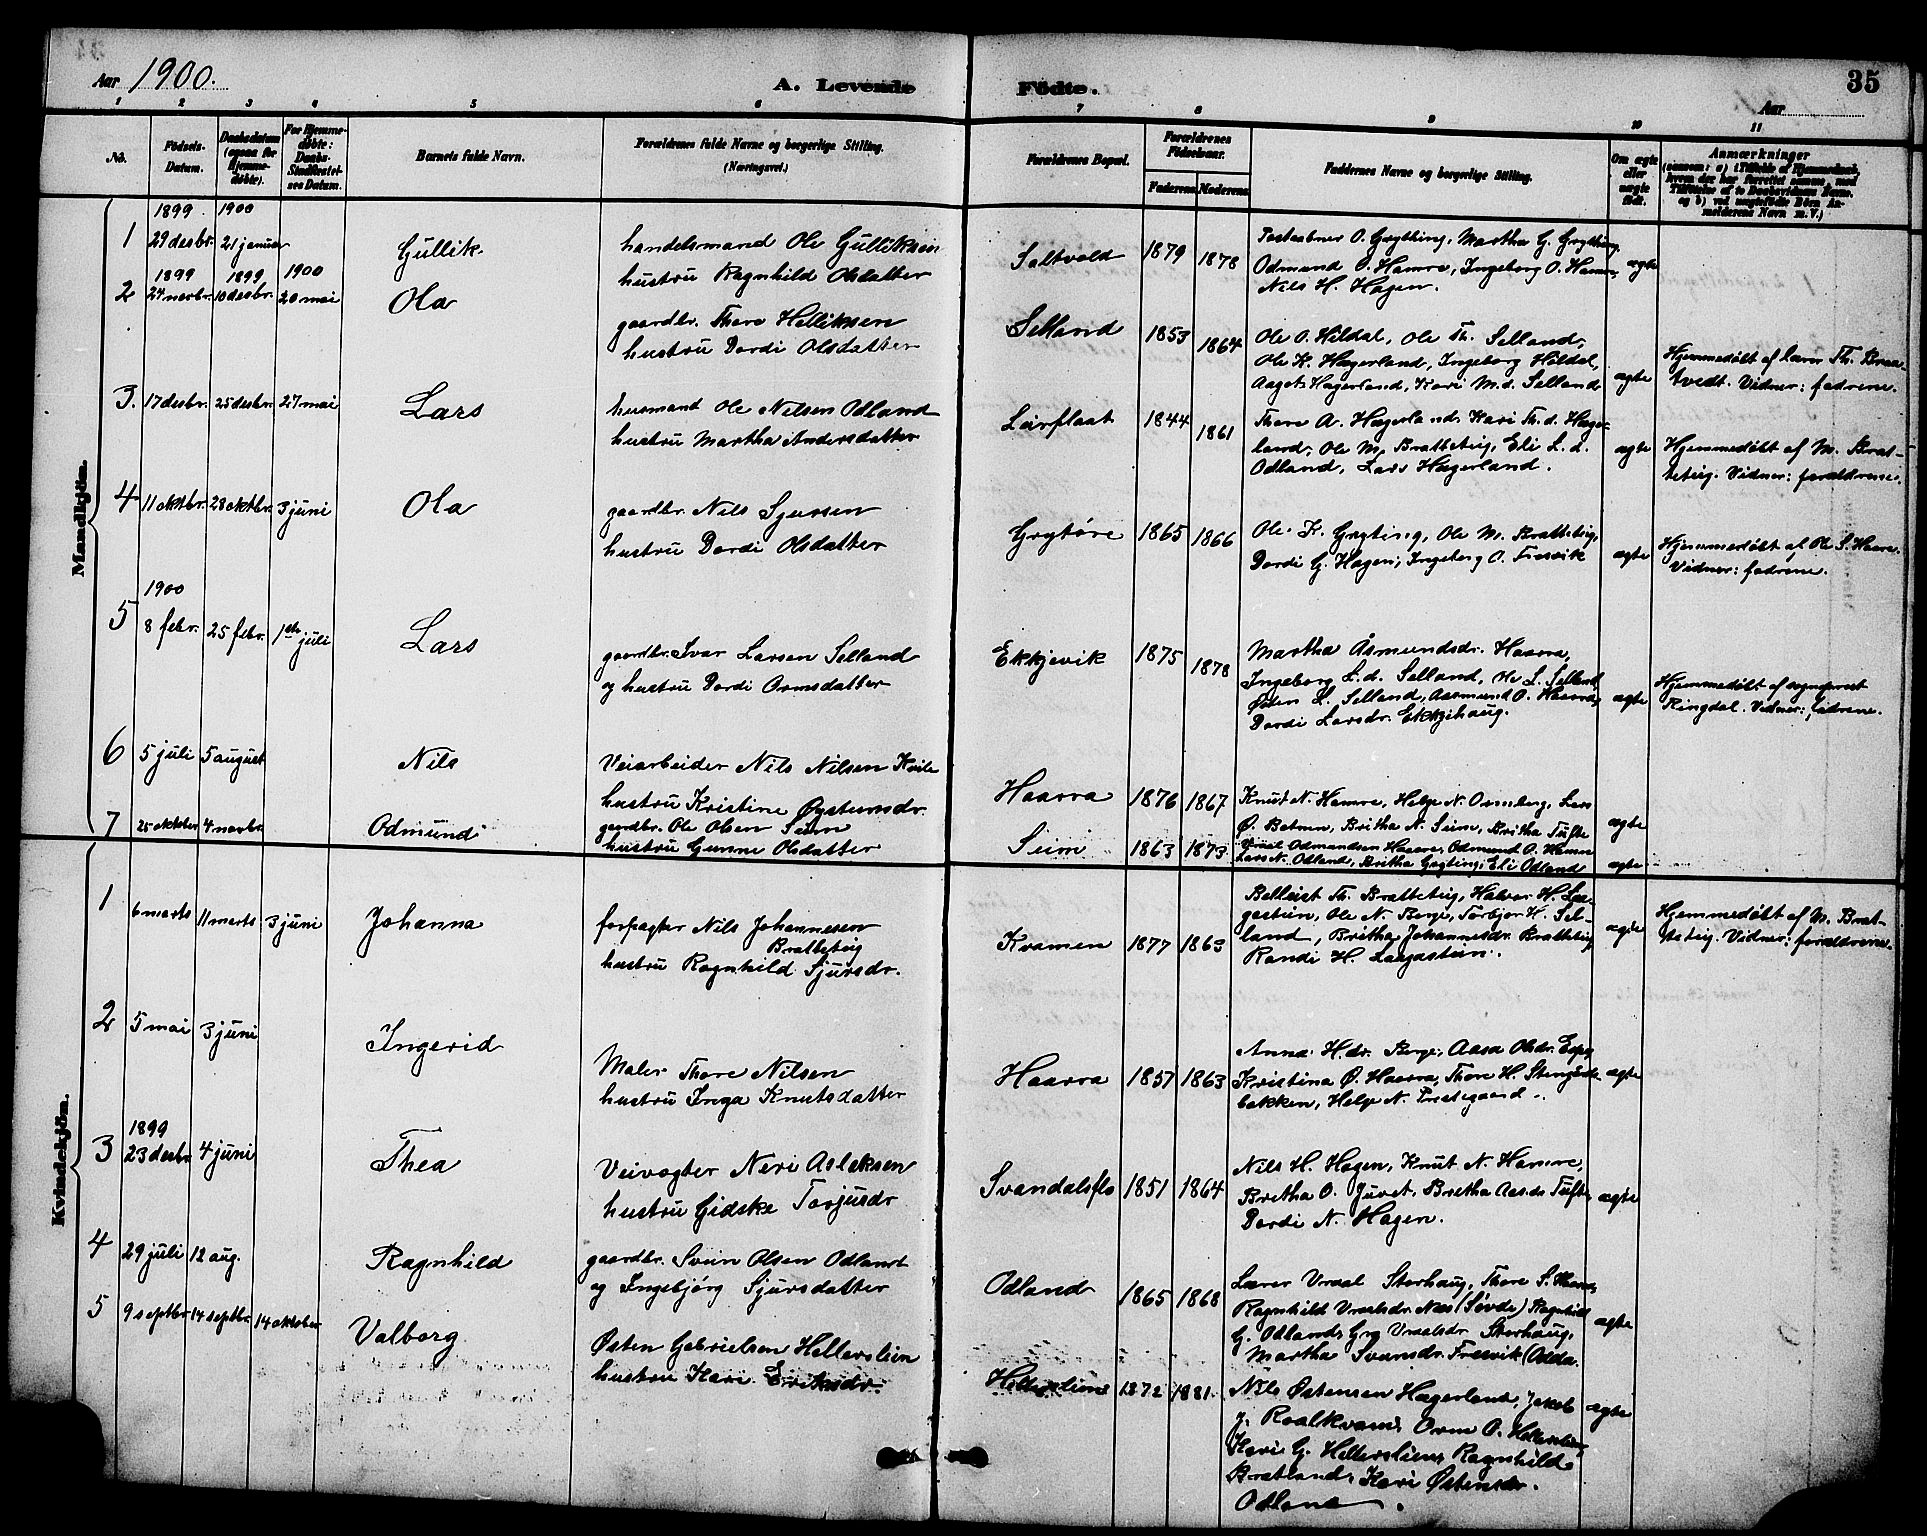 Aar 1900.
A. Levende Födte.
35
Aar
1 2 3 4 5 6 7 8 9 10 11
No.
Födsels-Datum.
Daabsdatum (ogsaa for Hjemme-døbte).
For Hjemme-døbte: Daabs-Stadfæstel-ses Datum.
Barnets fulde Navn.
Forældrenes fulde Navne og borgerlige Stilling. (Næringsvei.)
Forældrenes Bopæl.
Forældrenes Födselsaar.
Faderens. Moderens.
Faddernes Navne og borgerlige Stilling.
Om ægte eller uægte født.
Anmærkninger
Mandkjön.
1899 1900
1 29 desbr. 21 januar Gullik handelsmand Ole Gulliksen
hustru Ragnhild Olsdatter
Saltvold 1879 1878
O. Grytting, Martha G. Grytting,
Odmund O. Hamre, Ingeborg O. Hamre,
Nils H. Hagen.
ægte
1899 1899 1900
2 24 novbr. 10 desbr. 20 mai Ola
gaardbr. Thore Helliksen
hustru Dordi Olsdatter
Selland 1853 1864
Ole O. Hildal, Ole Th. Selland,
Ole K. Hægerland, Ingeborg Hildal,
Aagot Hægerland, Kari M.d. Selland
ægte
Hjemmedøbt af lærer Th. Braa-
tvedt. Vidner: fadrene.
3. 17 desbr. 25 desbr. 27 mai Lars
husmand Ole Nilsen Odland
hustru Martha Andersdatter
Leirflaat 1844 1861
Thore A. Hægerland, Kari Th. d. Hæger-
land, Ole M. Bratteteig, Eli L. d.
Odland, Lars Hægerland.
ægte
Hjemmedøbt af M. Brat-
teteig. Vidner: forældrene.
4 11 oktbr. 28 oktbr. 3 juni Ola
gaardbr. Nils Sjursen
hustru Dordi Olsdatter
Grytøre 1865 1866
Ole K. Gryting, Ole M. Bratteteig,
Dordi G. Hagen, Ingeborg O. Fresvik
ægte
Hjemmedøbt af Ole S. Haara.
Vidner: fadrene.
1900
5 8 febr. 25 febr. 1ste juli Lars
gaardbr. Ivar Larsen Selland
og hustru Dordi Ormsdatter
Ekkjevik 1875 1878
Martha Åsmundsdr. Haara,
Ingeborg L.d. Selland, Ole L. Selland,
Østen L. Selland, Aasmund O. Haara,
Dordi Larsdr. Ekkjehaug.
ægte
Hjemmedøbt af sogneprest
Ringdal. Vidner: fadrene.
6 5 juli 5 august Nils
Veiarbeider Nils Nilsen Kvile
hustru Kristine Øysteinsdr.
Haara 1876 1867
Knut N. Hamre, Helge N. Ormberg, Lars
Ø. Botnen, Britha N. Seim, Britha Tufte
ægte
7 25 oktober 4 novbr. Odmund
gaardbr. Ole Olsen Seim
hustru Gunne Olsdatter
Seim 1863 1873
Odmundsen Haara, Odmund O. Hamre
Lars N. Odland, Britha Gryting, Eli Odland
ægte
Kvindekjön.
1 6 marts 11 marts 3 juni Johanna
forpagter Nils Johannesen
Bratteteig
hustru Ragnhild Sjursdr.
Kvamen 1877 1863
Belleist Th. Bratteteig, Halvor H. Laa-
gastein, Ole N. Berge, Torbjør H. Sel-
land, Britha Johannesdr. Bratteteig
Randi H. Laagastein.
ægte
Hjemmedøbt af M. Brat-
teteig. Vidner: forældrene.
2 5 mai 3 juni Ingerid
Maler Thore Nilsen
hustru Inga Knutsdatter
Haara 1857 1863
Anna H.dr. Berge, Aasa Olsdr. Espe,
Kristina Ø. Haara, Thore H.
bakken, Helge N. Prestegaard.
ægte
1899
3 23 desbr. 4 juni Thea
Veivogter Neri Aslaksen
hustru Gidske Torjusdr
Svandalsflo 1851 1864
Nils H. Hagen, Knut N. Hamre,
Britha O. Juvet, Britha Aasdr. Tufte,
Dordi N. Hagen.
ægte
4 29 juli 12 aug. Ragnhild
gaardbr. Svein Olsen Odland
og Ingebjørg Sjursdatter
Odland 1865 1868
Lærer Vraal Storhaug, Thore S. Haara,
Ragnhild Vraalsdr. Næs (Søvde) Ragnhild
G. Odland, Gro Vraalsdr Storhaug,
Martha Svensdr. Fresvik (Odda.
ægte
5 9 septbr. 14 septbr. 14 oktober Valborg
Østen Gabrielsen Hellerslien
hustru Kari Eriksdr.
Hellerslien 1872 1881.
Nils Østensen Hægerland, Jakob
J. Roalkvam, Orm O. Hellerslien,
Kari G. Hellerslien, Ragnhild
Bratland, Kari Østensdr.
Odland.
ægte